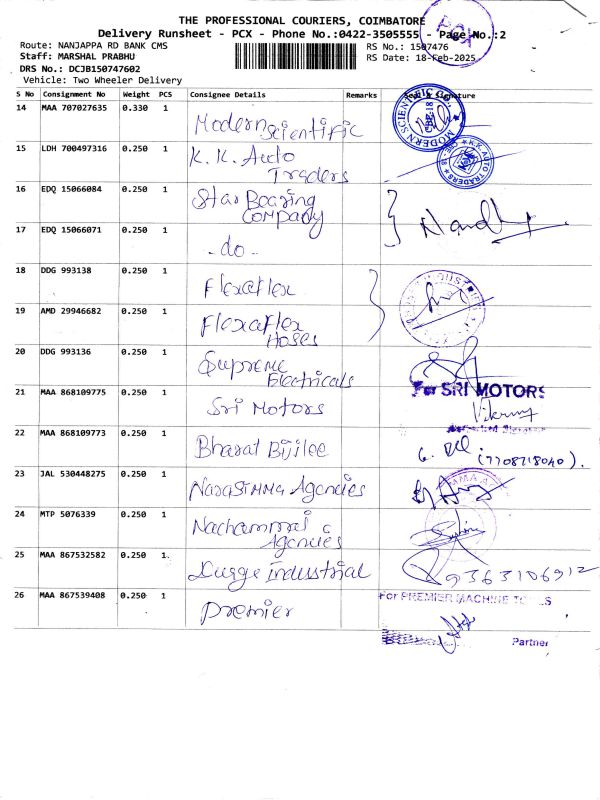 THE PROFESSIONAL COURIERS, COIMBATORE
Delivery Runsheet - PCX - Phone No.:0422-3505555 - Page No.:2
Route: NANJAPPA RD BANK CMS
RS No.: 1507476
Staff: MARSHAL PRABHU
RS Date: 18-Feb-2025
DRS No.: DCJB150747602
Vehicle: Two Wheeler Delivery
S No Consignment No Weight PCS Consignee Details Remarks Seal & Signature
14 MAA 707027635 0.330 1 Modern Scientific
MODERN SCIENTIFIC CO
CBE-18
15 LDH 700497316 0.250 1 K.K. Auto
Traders
K.K. AUTO TRADERS
CBE-18
16 EDQ 15066084 0.250 1 Star Boaring
Company
17 EDQ 15066071 0.250 1 - do -
18 DDG 993138 0.250 1 Flexaflex
19 AMD 29946682 0.250 1 Flexaflex
Hoses
20 DDG 993136 0.250 1 Supreme
Electricals
For SRI MOTORS
21 MAA 868109775 0.250 1 Sri Motors
22 MAA 868109773 0.250 1 Bharat Bijlee
(7708718040).
23 JAL 530448275 0.250 1 Narasimma Agencies
24 MTP 5076339 0.250 1 Nachammai
Agencies
25 MAA 867532582 0.250 1. Durge industrial
9363106912
26 MAA 867539408 0.250 1 Premier
For PREMIER MACHINE TOOLS
Partner